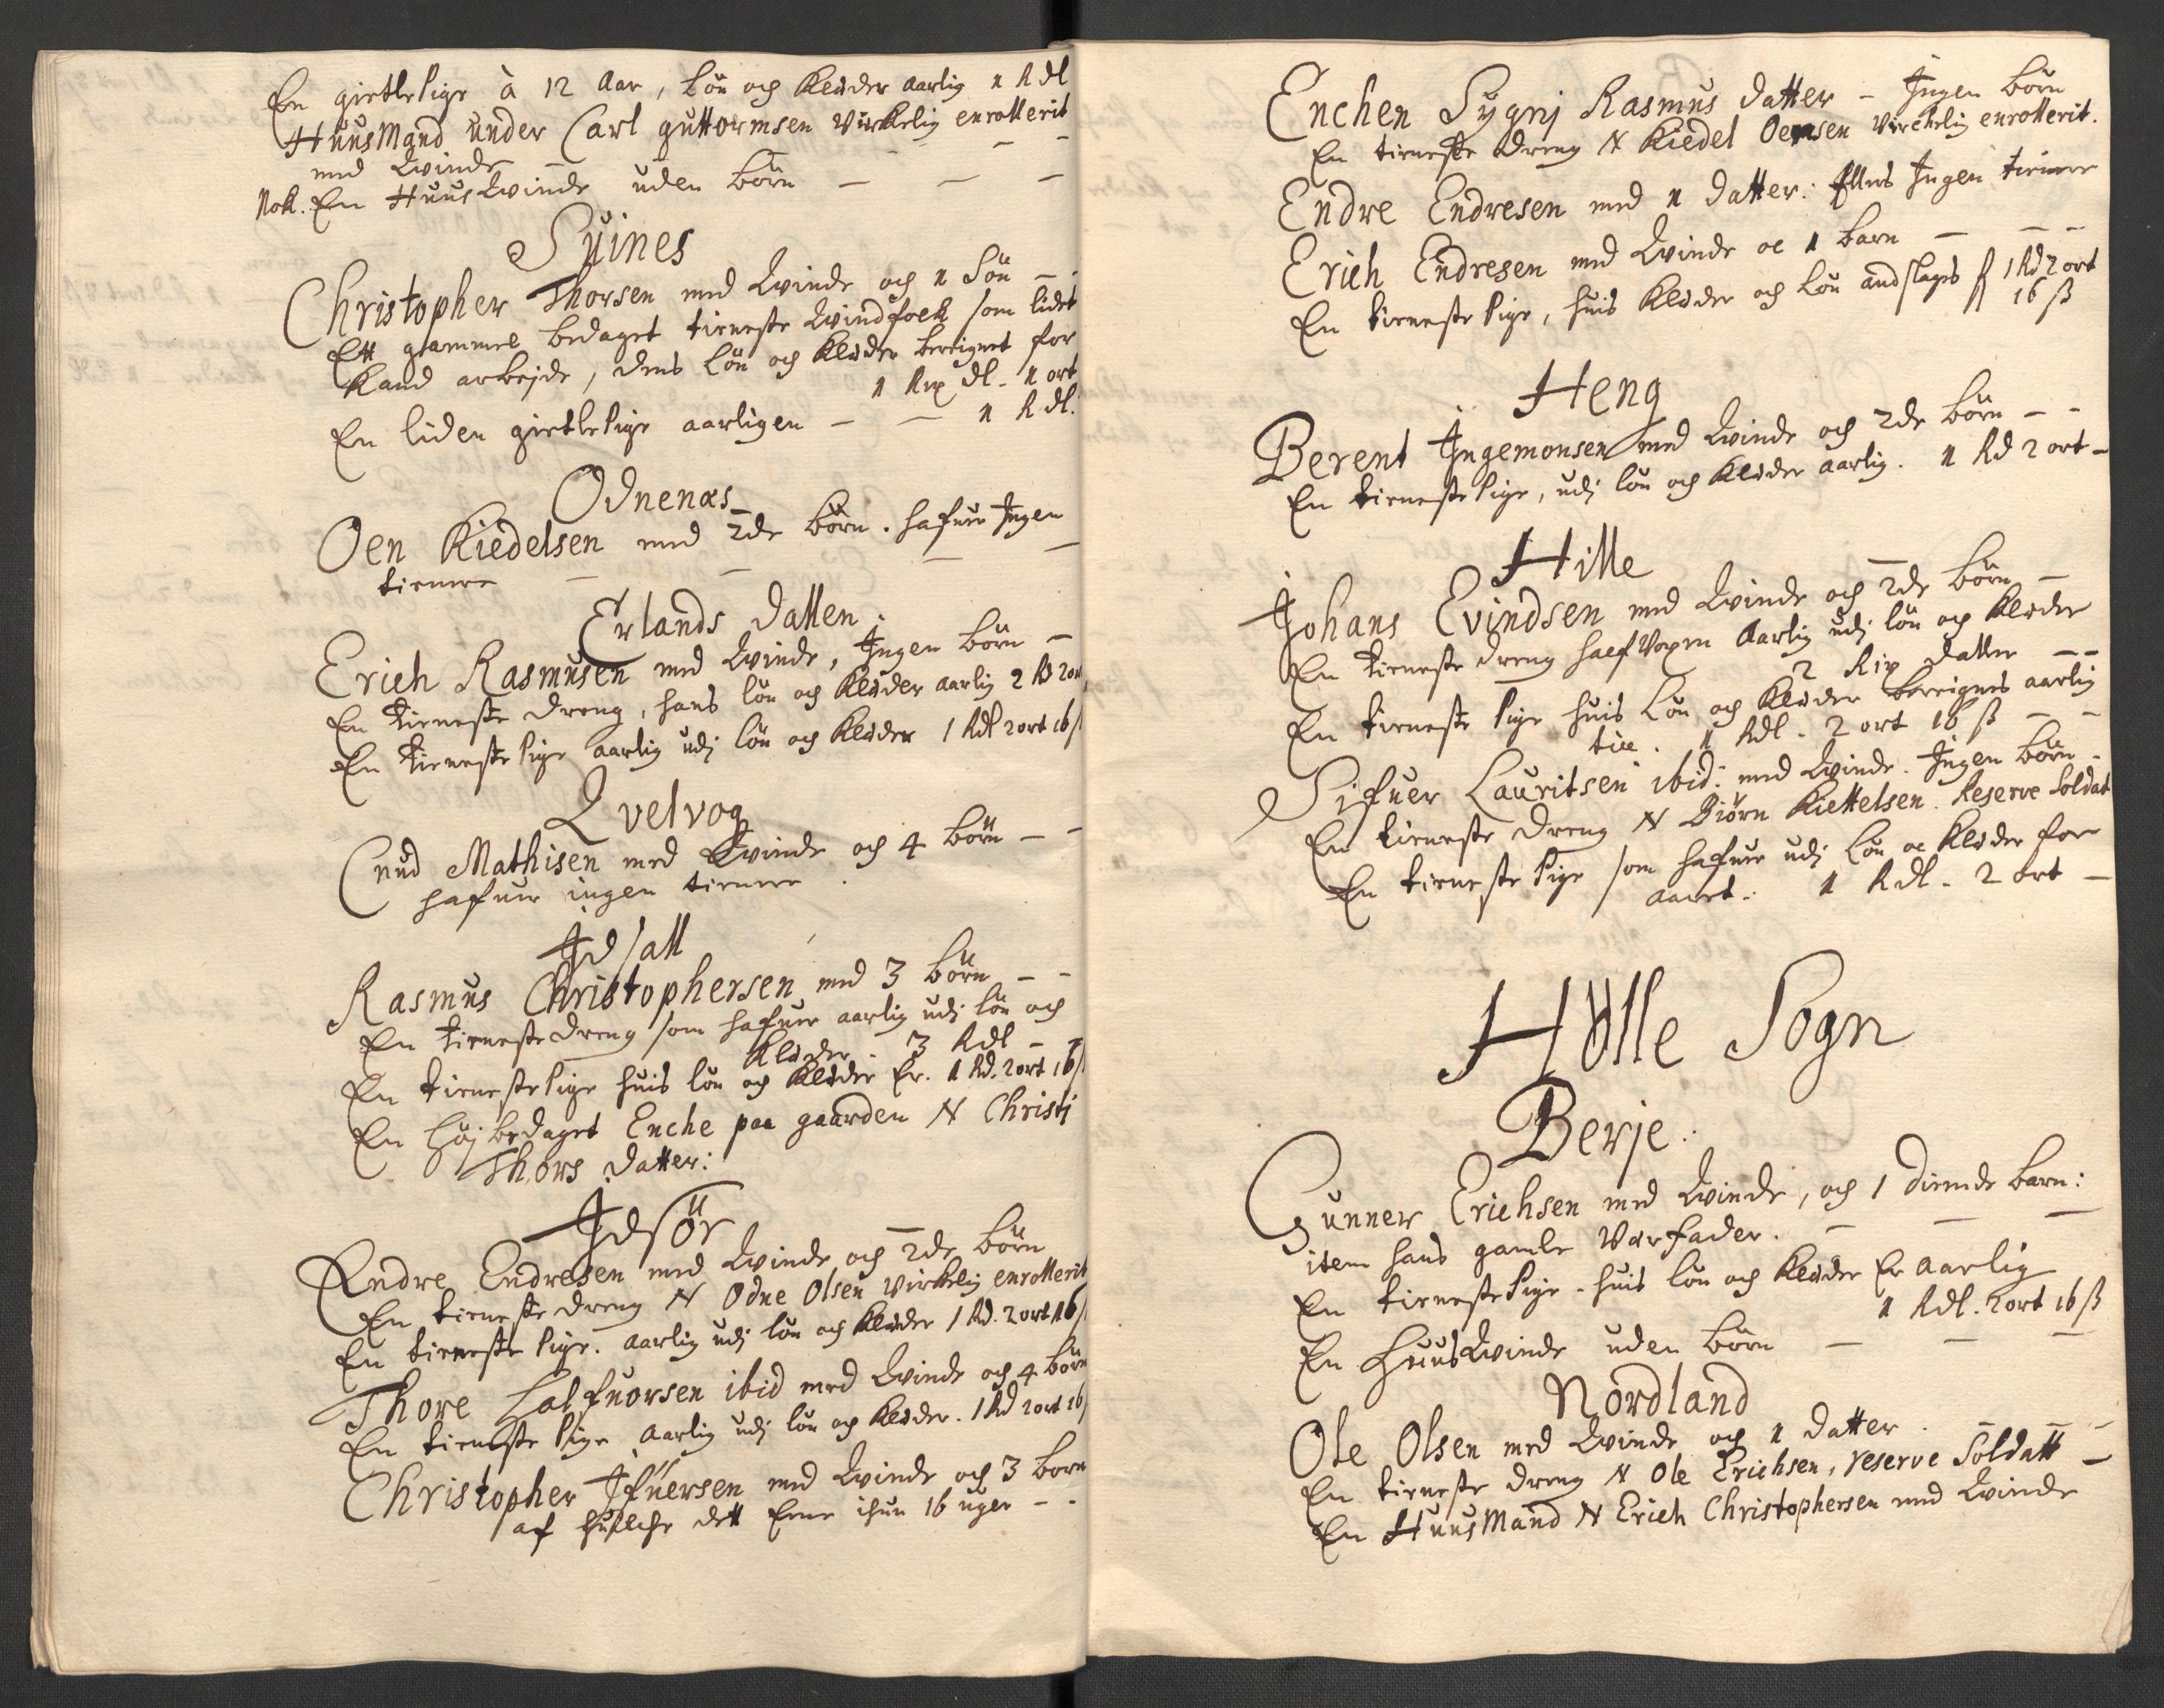 En gietlepige à 12 Aar, løn och Kleder aarlig 1 Rdl
HuusMand under Carl guttormsen virkelig enrollerit
med Qvinde — — —
Nok. En HuusQvinde uden børn — — —
Suines
Christopher Thorsen med Qvinde och 1 Søn — -
Ett gammel bedaget tieneste Qvindfolk som lidet
Kand arbejde, dens løn och Kleder beregnet for
1 Rix dl. 1 ort
En liden gietlepige aarligen — — 1 Rdl.
Odnenæs
Oen Kiedelsen med 2de børn. hafuer Ingen
tienere — — — —
Erlands dallen.
Erich Rasmusen med Qvinde, Ingen børn —
En tieneste dreng, hans løn och Kleder aarlig 2 Rd 2 ort
En tieneste pige aarlig udj løn och Kleder 1 Rdl 2 ort 16 ß
Qvelvog
Cnud Mathisen med Qvinde och 4 børn — -
hafuer ingen tienere.
Idsall
Rasmus Christophersen med 3 børn — -
En tieneste dreng som hafuer aarlig udj løn och
Kleder - 3 Rdl - -
En tieneste pige huis løn og Kleder Er. 1 Rd. 2 ort 16 ß
En høj bedaget Enche paa gaarden N Christj
Thors datter:
Idsør
Endre Endresen med Qvinde och 2de børn
En tieneste dreng N Odne Olsen virkelig enrollerit
En tieneste pige. aarlig udj løn och Kleder 1 Rd. 2 ort 16 ß
Thore Halfuorsen ibid med Qvinde och 4 børn
En tieneste pige aarlig udj løn og Kleder. 1 Rd 2 ort 16 ß
Christopher Ifuersen med Qvinde och 3 born
af huilche dett Eene ichun 16 uger - -
Enchen Sygnj Rasmus datter - Ingen børn
En tieneste dreng N Kiedel Oensen virchelig enrollerit.
Endre Endresen med 1 datter: Ellers Ingen tienere
Erich Endresen med Qvinde oc 1 barn — - -
En tieneste pige, huis Kleder och løn andslages f 1 Rd 2 ort
16 ß
Heng
Berent Ingemonsen med Qvinde och 2de børn - -
En tieneste pige, udj løn och Kleder aarlig. 1 Rd 2 ort -
Hille
Johans Evindsen med Qvinde och 2de børn —
En tieneste dreng half voxen aarlig udj løn og Kleder
2 Rix daller - -
En tieneste pige huis løn og Kleder beregnes aarlig
till. 1 Rdl. 2 ort 16 ß - -
Sifuer Lauritsen ibid: med Qvinde. Ingen børn -
En tieneste dreng N Biørn Kiettelsen. Reserve Soldat
En tieneste pige som hafuer udj løn oc Kleder for
aaret. 1 Rdl. 2 ort —
Hølle Sogn
Berje:
Gunner Erichsen med Qvinde, och 1 diende barn:
item hans gamle Værfader. — — —
En tieneste pige. huis løn och Kleder Er aarlig
1 Rdl. 2 ort 16 ß
En HuusQvinde uden børn — — —
Nordland
Ole Olsen med Qvinde og 1 datter - - -
En tieneste dreng N Ole Erichsen, reserve Soldatt —
En HuusMand N Erich Christophersen med Qvinde